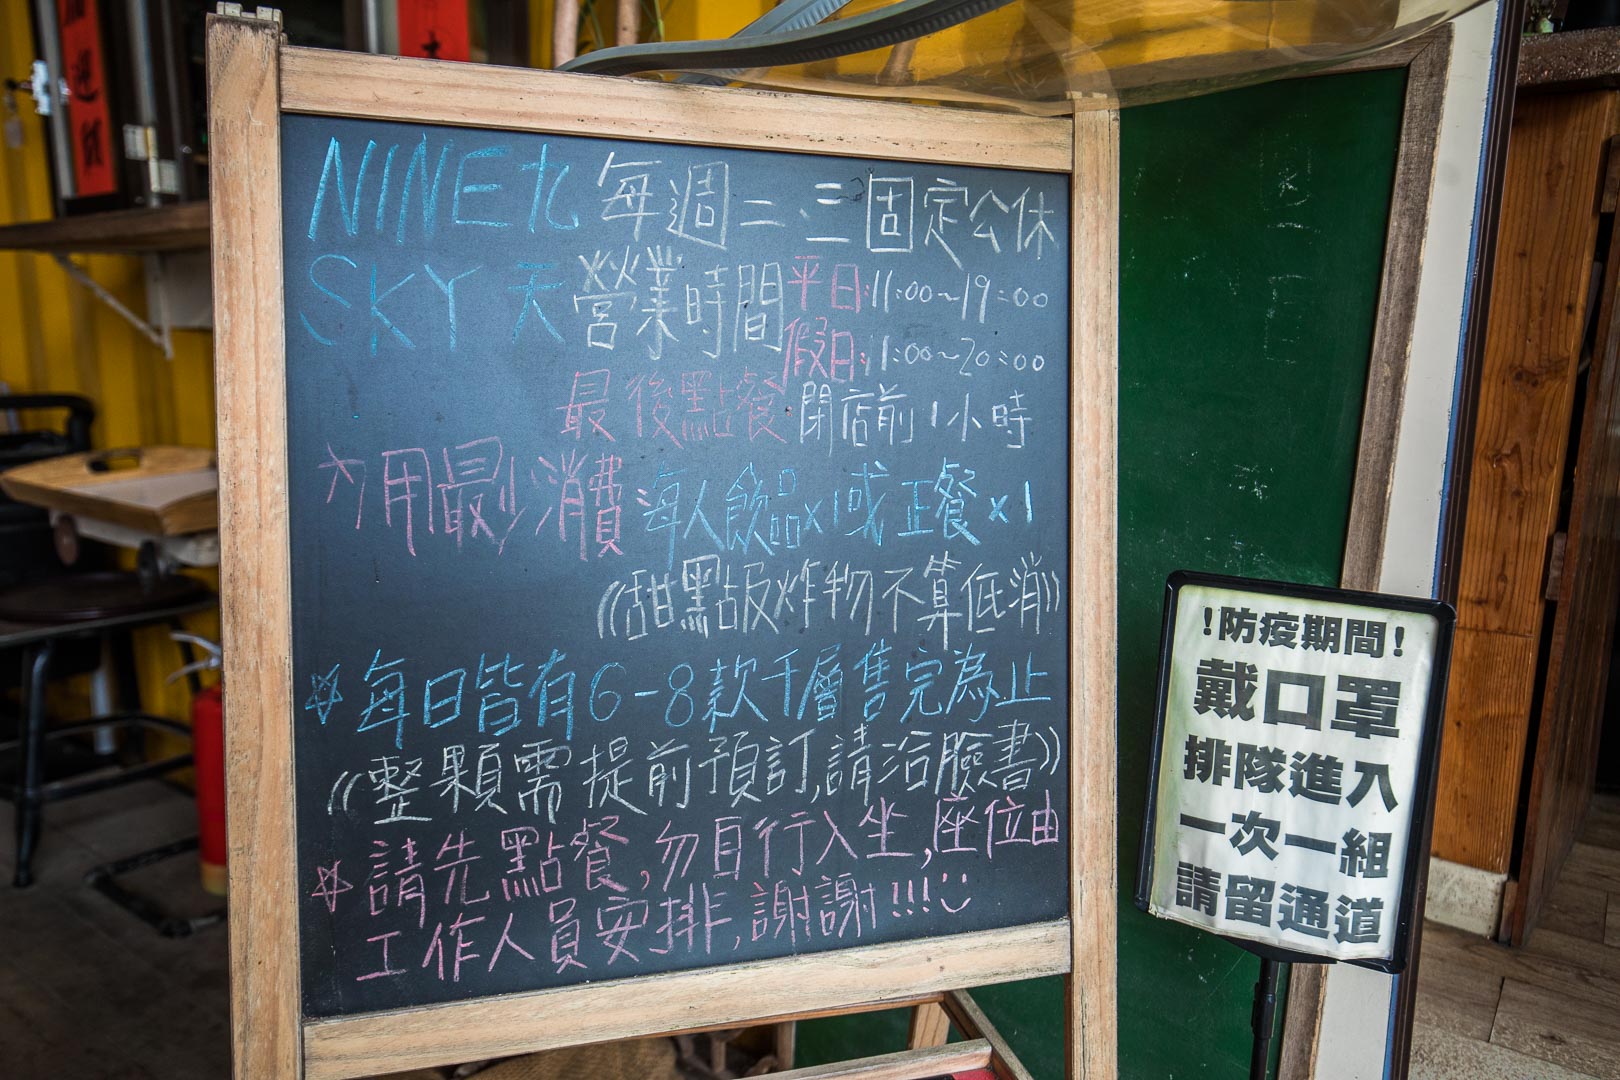 NINE九 每週二、三固定公休
SKY 天 營業時間 平日:11:00~19:00
假日:11:00~20:00
最後點餐 閉店前1小時
內用最少消費:每人飲品x1或正餐x1
((甜點及炸物不算低消))
☆每日皆有6-8款千層售完為止
((整顆需提前預訂,請洽臉書))
☆請先點餐,勿自行入坐,座位由
工作人員安排,謝謝!!!
!防疫期間!
戴口罩
排隊進入
一次一組
請留通道